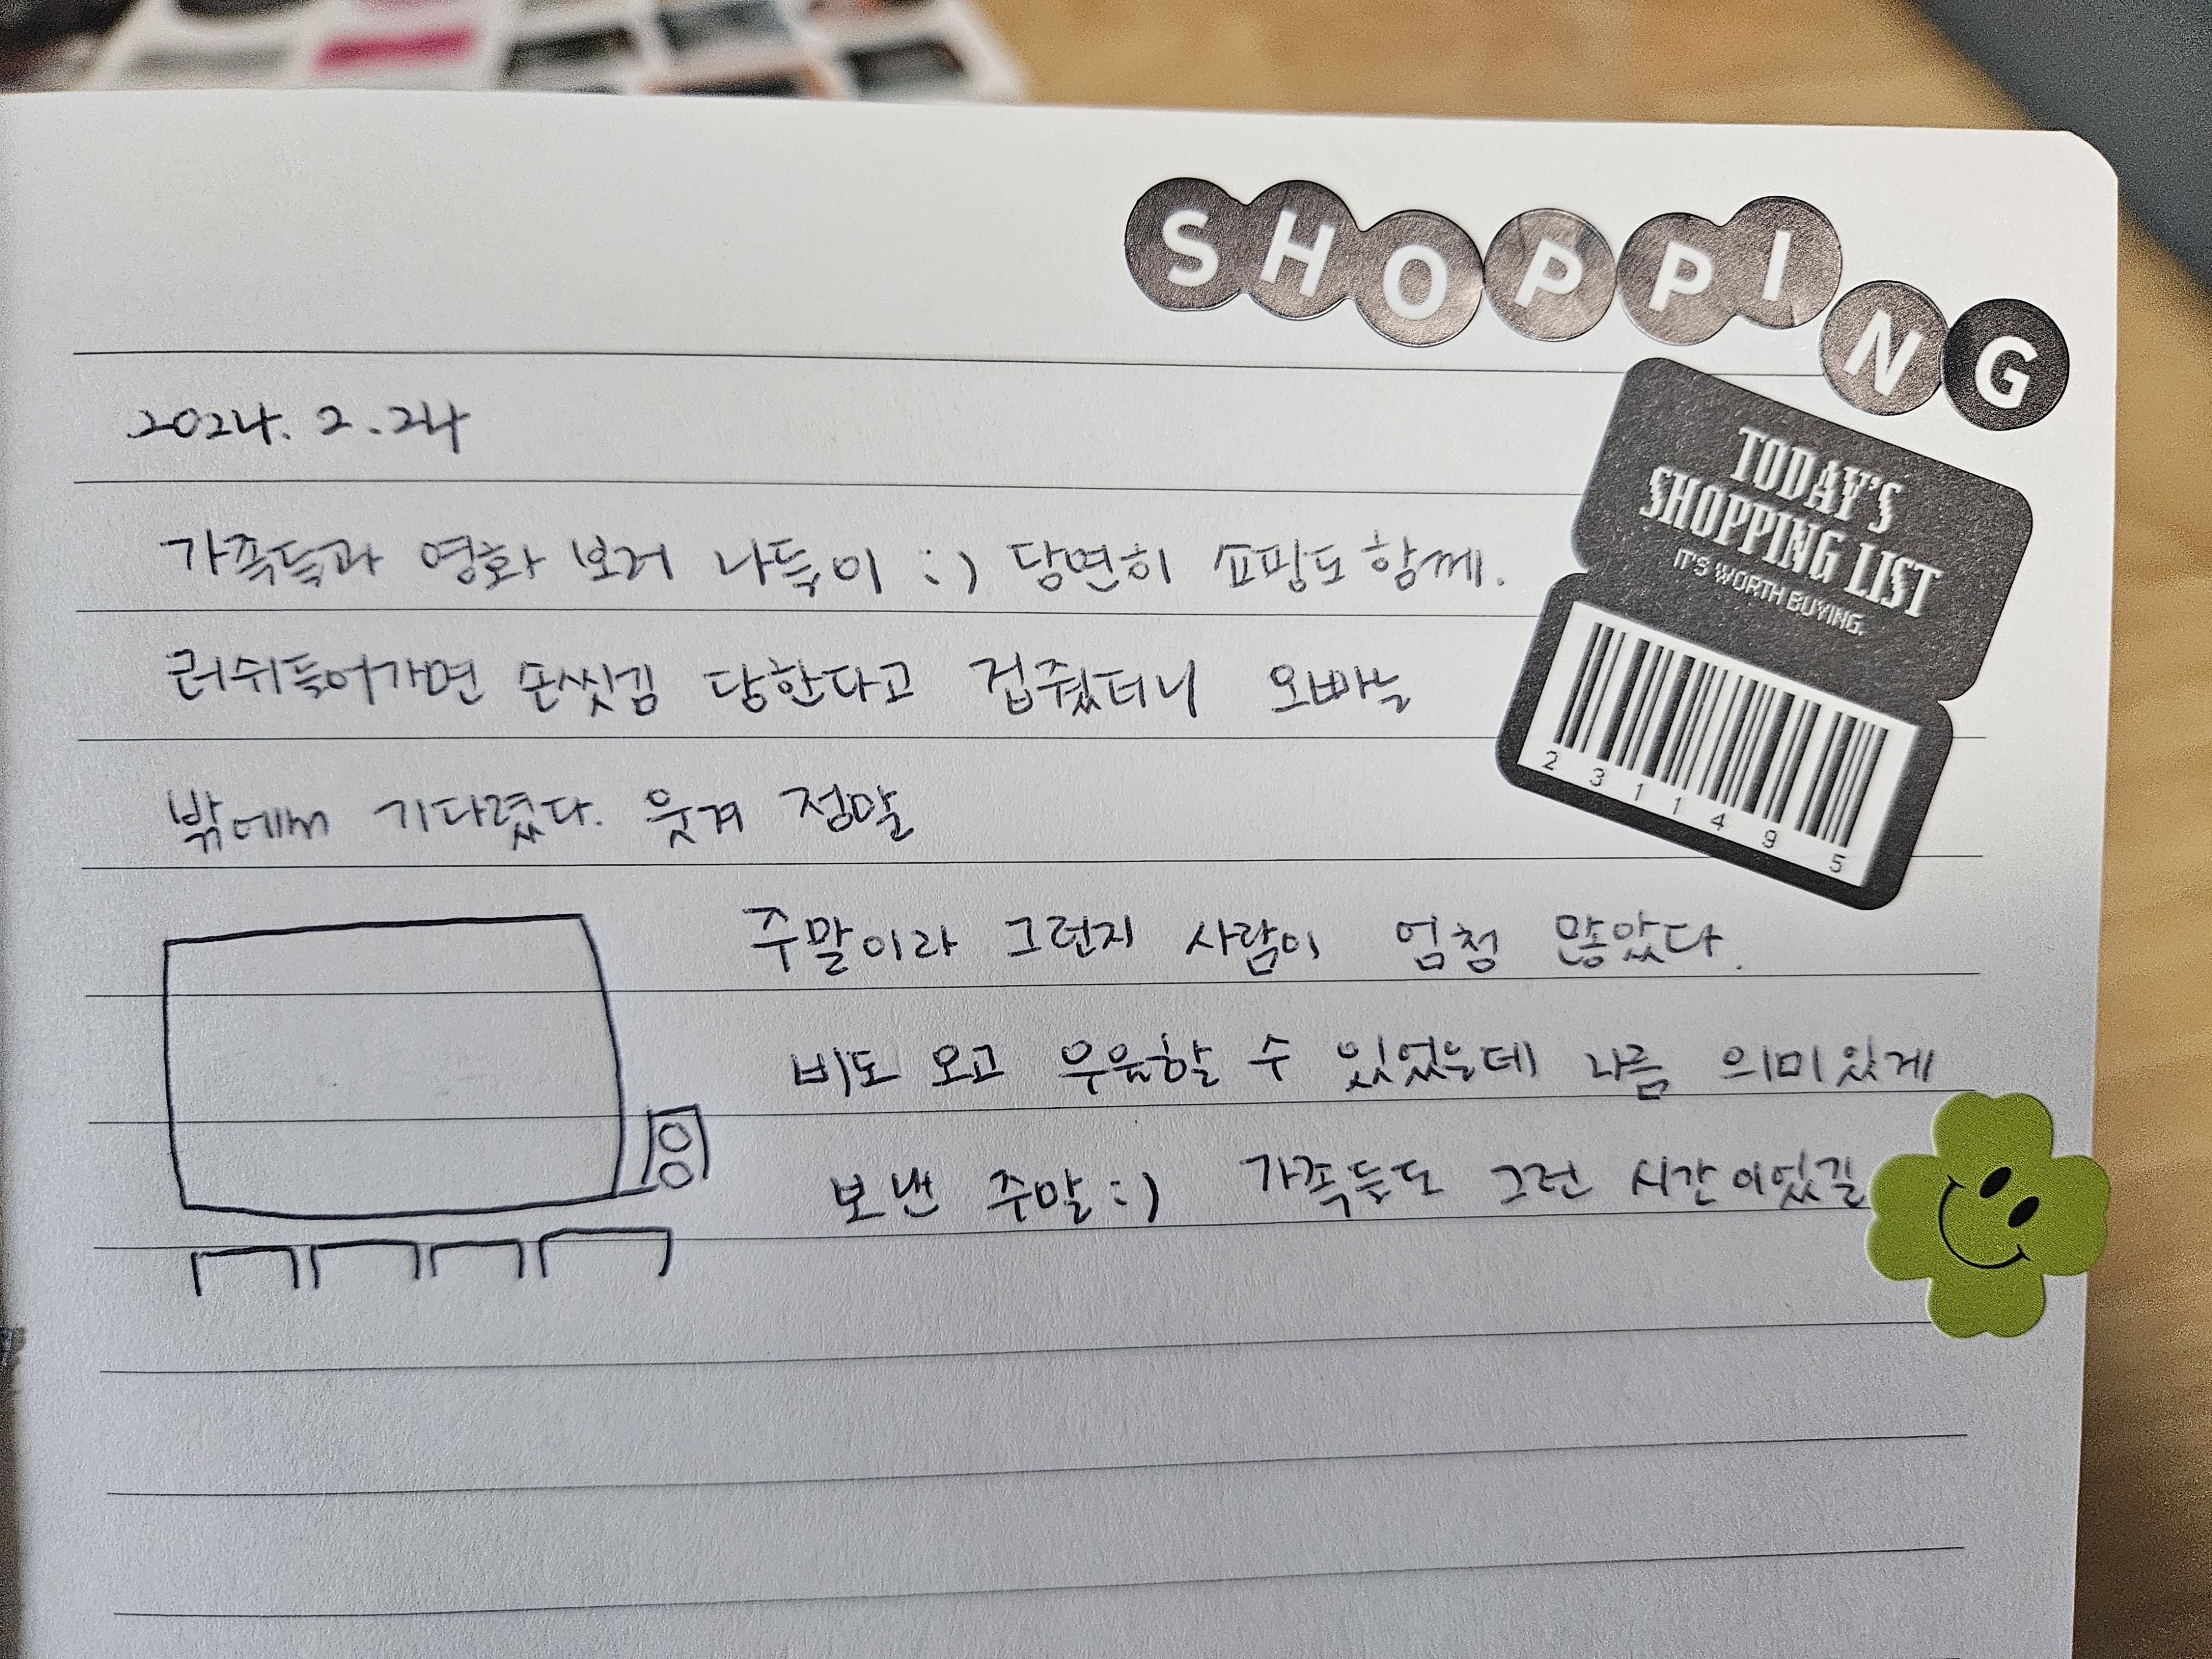 SHOPPING
TODAY'S
SHOPPING LIST
IT'S WORTH BUYING.
2 3 1 1 4 9 5
2024. 2. 24
가족들과 영화 보러 나들이 :) 당연히 쇼핑도 함께.
러쉬들어가면 손씻김 당한다고 겁줬더니 오빠는
밖에서 기다렸다. 웃겨 정말
주말이라 그런지 사람이 엄청 많았다.
비도 오고 우울할 수 있었는데 나름 의미있게
보낸 주말 :) 가족들도 그런 시간이었길